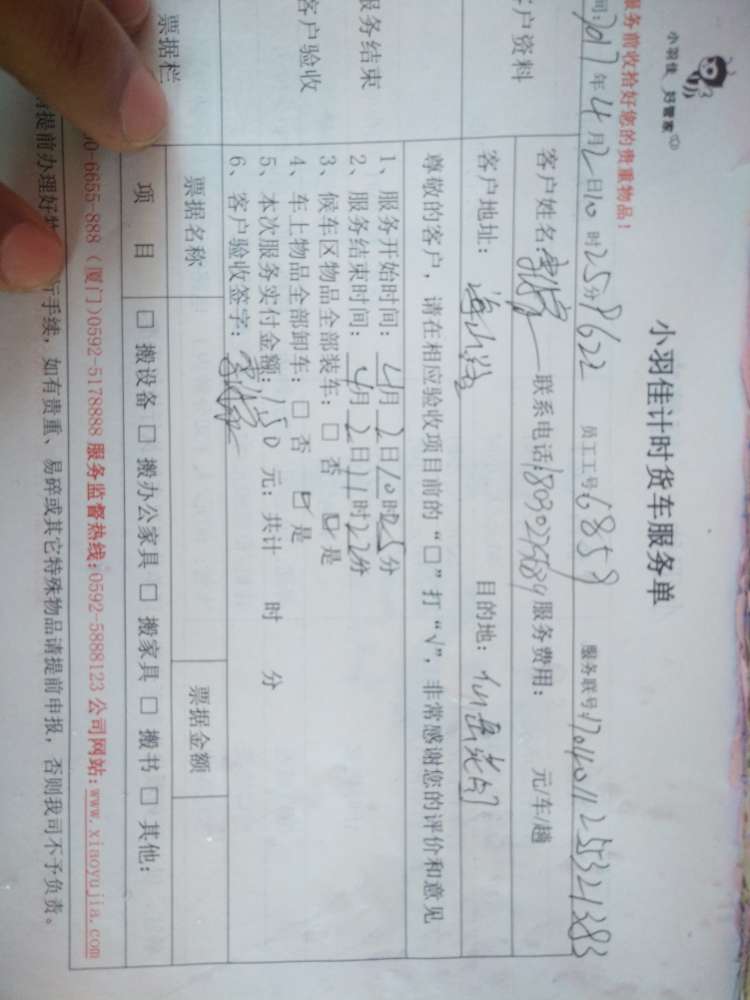 小羽佳 好管家
小羽佳计时货车服务单
服务前收拾好您的贵重物品!
间:2017年4月2日10时25分 8622 员工工号:6859 服务联号:1704011255321383
户资料
客户姓名: 联系电话: 服务费用: 元/车/趟
客户地址: 目的地:
尊敬的客户,请在相应验收项目前的“□”打“√”,非常感谢您的评价和意见
服务结束
客户验收
1、服务开始时间:4月2日10时25分
2、服务结束时间:4月2日11时22分
3、候车区物品全部装车:□ 否 ☑ 是
4、车上物品全部卸车:□ 否 ☑ 是
5、本次服务实付金额:150 元;共计 时 分
6、客户验收签字:
票据栏
票据名称 票据金额
项 目 □ 搬设备 □ 搬办公家具 □ 搬家具 □ 搬书 □ 其他:
0-6655-888(厦门)0592-5178888 服务监督热线:0592-5888123 公司网站:www.xiaoyujia.com
提前办理好 行手续,如有贵重、易碎或其它特殊物品请提前申报,否则我司不予负责。